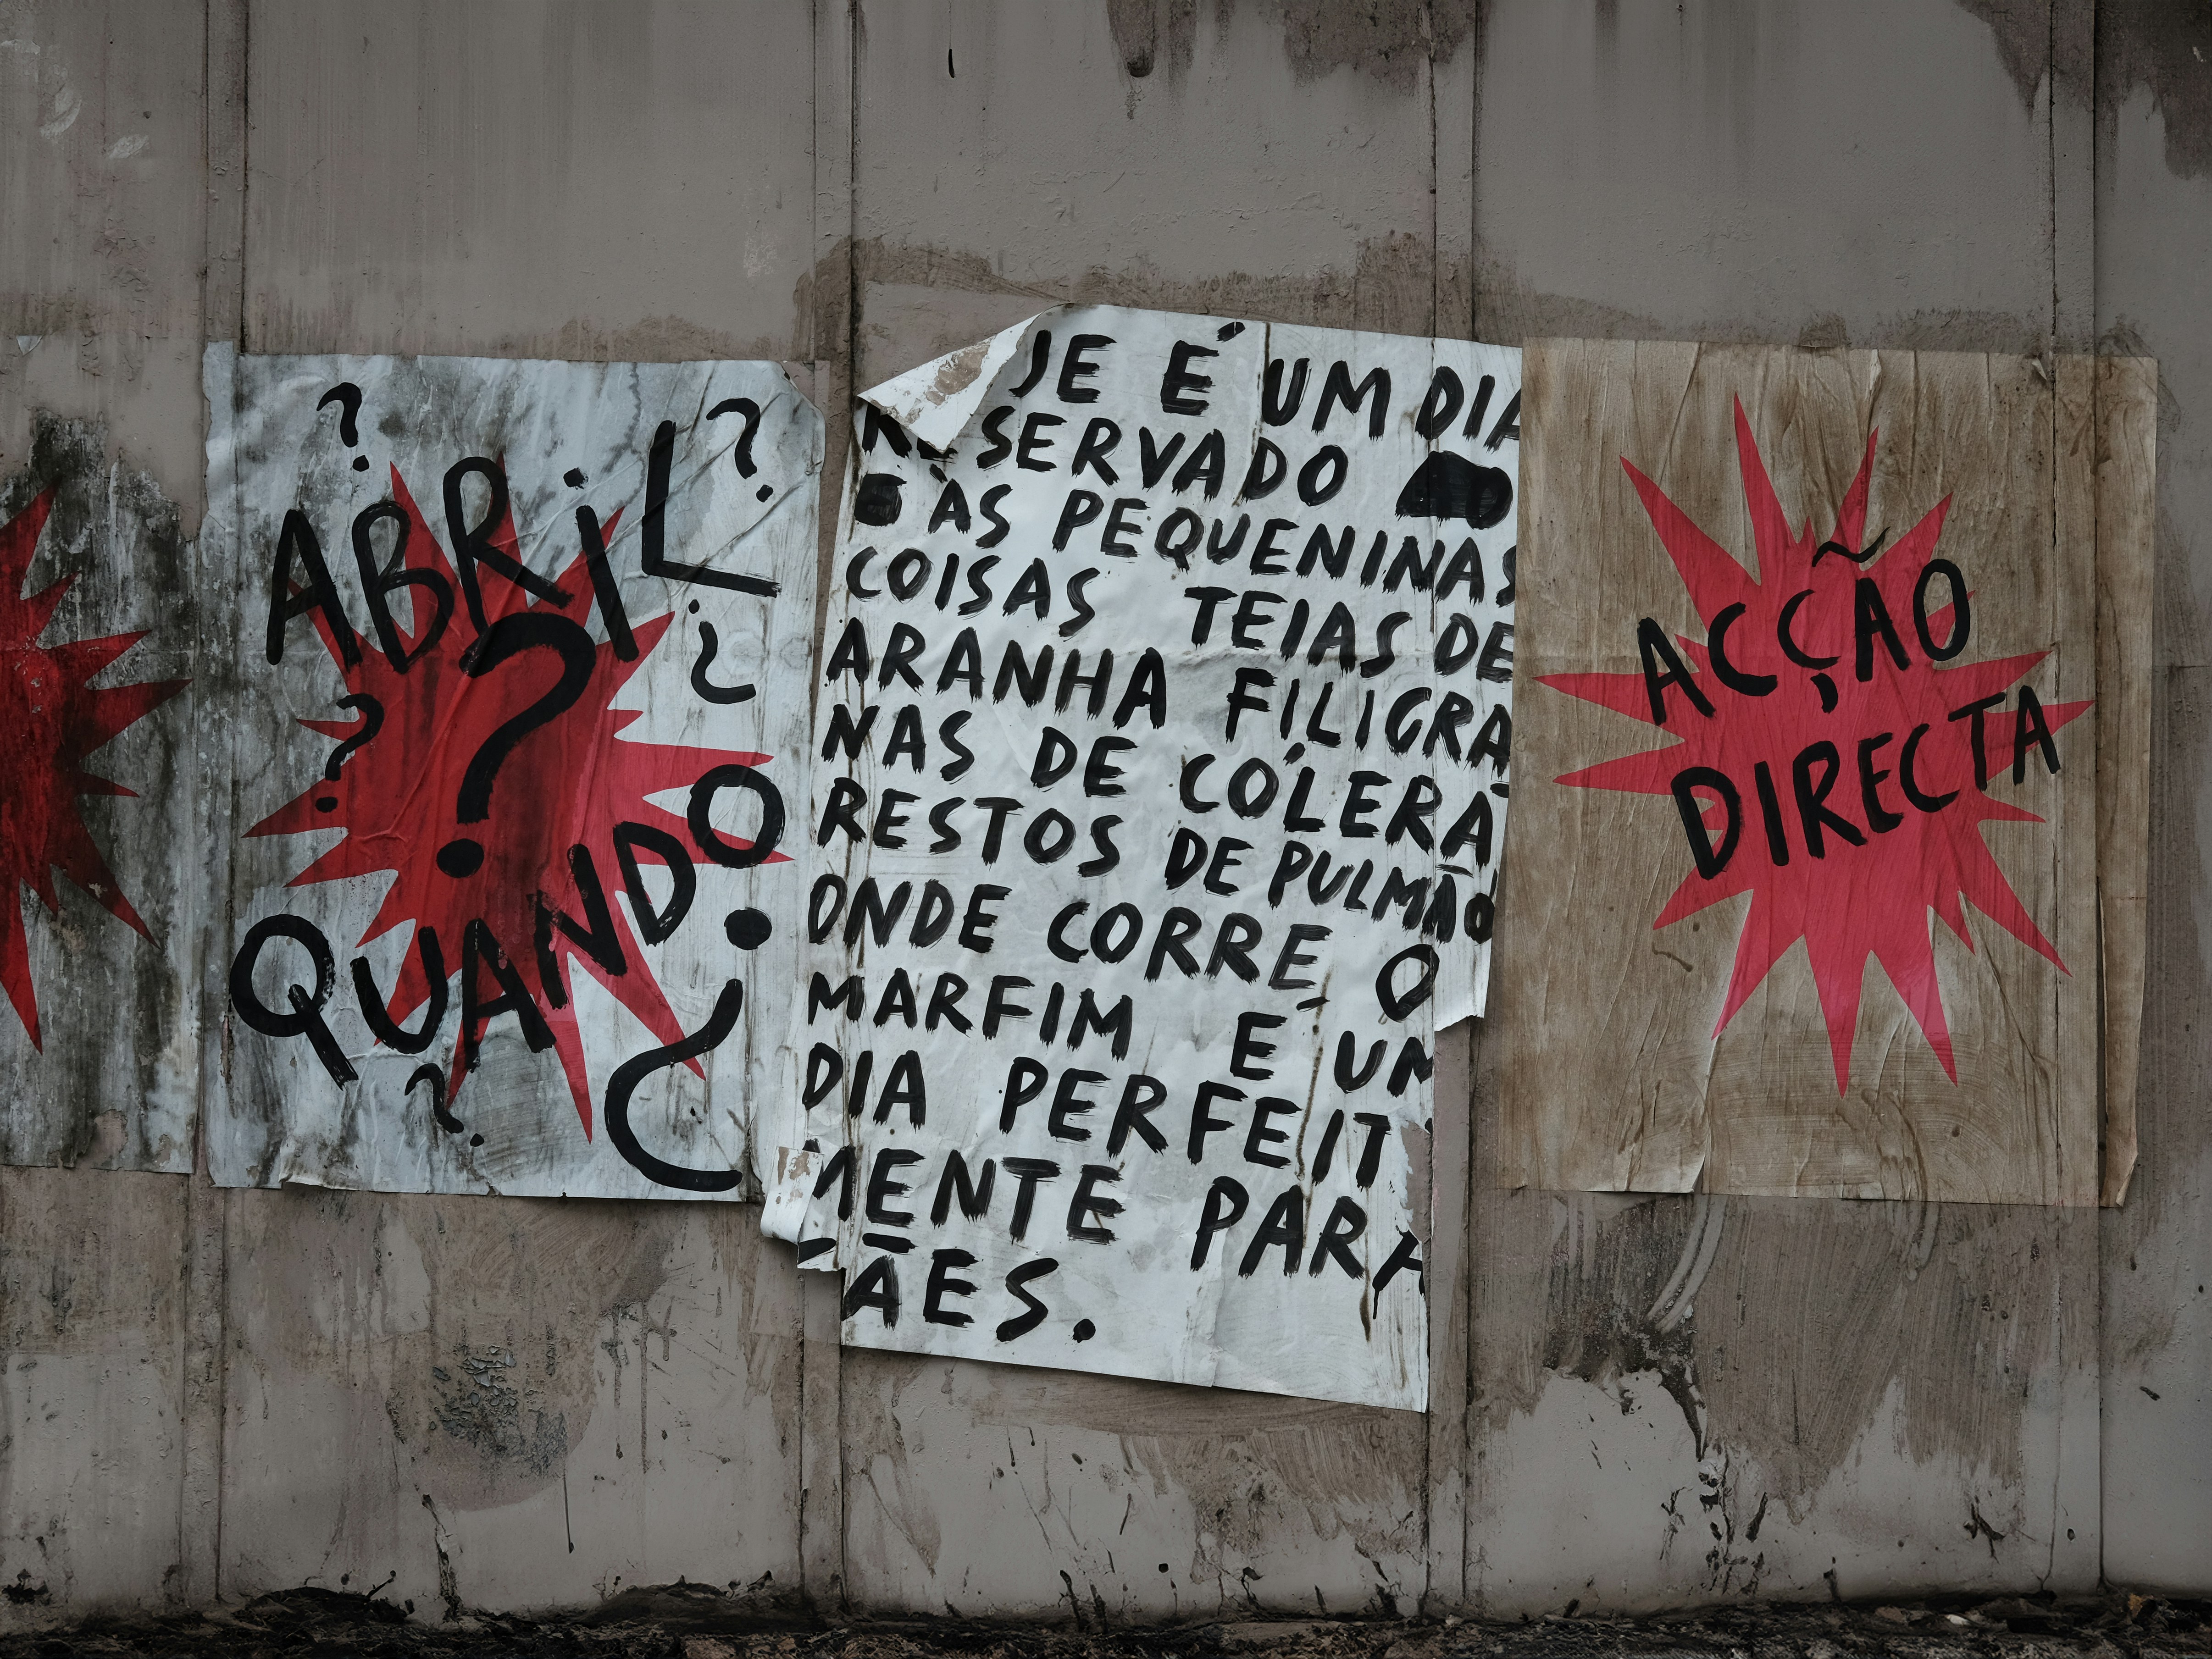 ?
?
ABRiL
?
¿
?
QUANDO
?
¿
JE É UM DIA
RESERVADO
ÀS PEQUENINAS
COISAS TEIAS DE
ARANHA FILIGRA
NAS DE CÓLERA
RESTOS DE PULMÃO
ONDE CORRE O
MARFIM É UM
DIA PERFEIT
MENTE PARA
ÃES.
ACÇÃO
DIRECTA